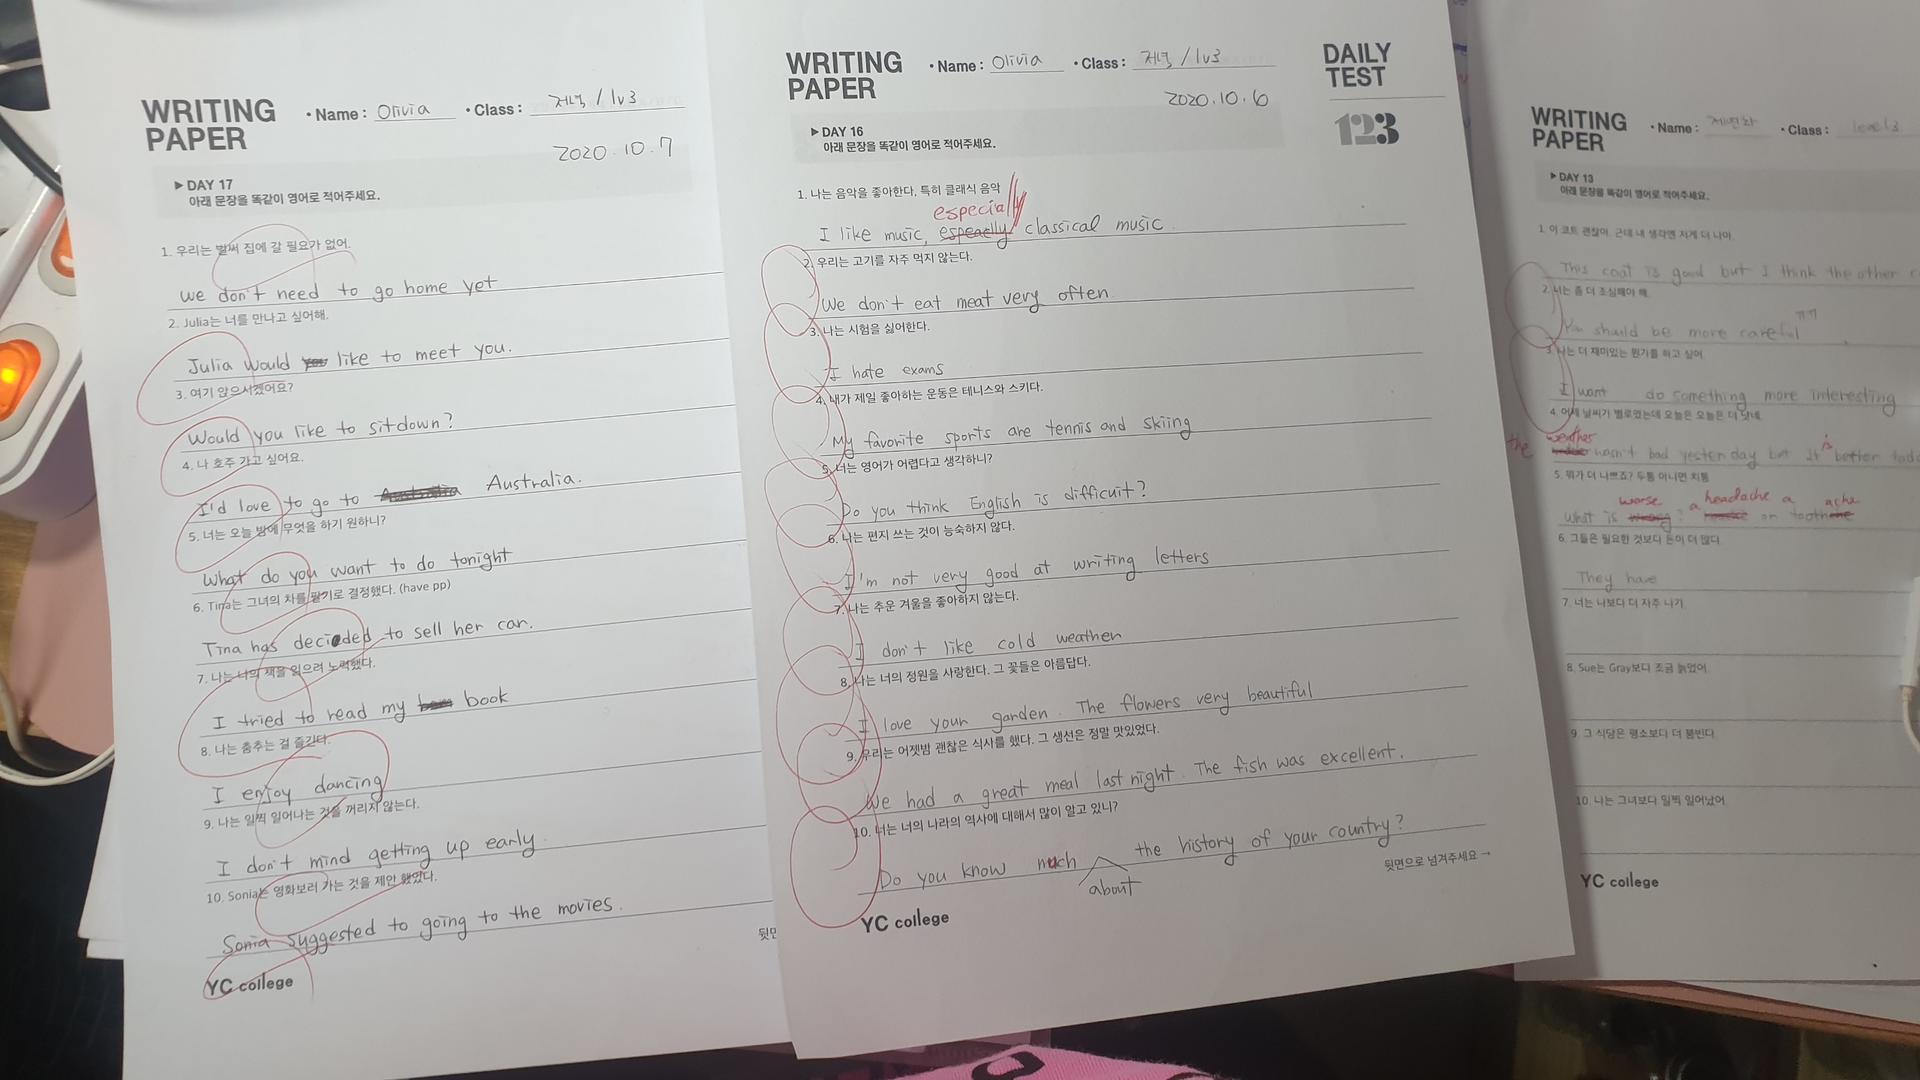 WRITING
PAPER
• Name : Olivia • Class : 저녁 / lv3
2020.10.7
▶DAY 17
아래 문장을 똑같이 영어로 적어주세요.
1. 우리는 벌써 집에 갈 필요가 없어.
we don't need to go home yet
2. Julia는 너를 만나고 싶어해.
Julia would like to meet you.
3. 여기 앉으시겠어요?
Would you like to sit down?
4. 나 호주 가고 싶어요.
I'd love to go to Australia.
5. 너는 오늘 밤에 무엇을 하기 원하니?
What do you want to do tonight
6. Tina는 그녀의 차를 팔기로 결정했다. (have pp)
Tina has decided to sell her car.
7. 나는 나의 책을 읽으려 노력했다.
I tried to read my book
8. 나는 춤추는 걸 즐긴다.
I enjoy dancing
9. 나는 일찍 일어나는 것을 꺼리지 않는다.
I don't mind getting up early.
10. Sonia는 영화보러 가는 것을 제안 했었다.
Sonia suggested to going to the movies.
뒷면
YC college
WRITING
PAPER
• Name : Olivia • Class : 저녁 / lv3
2020.10.6
DAILY
TEST
123
▶DAY 16
아래 문장을 똑같이 영어로 적어주세요.
1. 나는 음악을 좋아한다, 특히 클래식 음악
especially
I like music, classical music.
2. 우리는 고기를 자주 먹지 않는다.
We don't eat meat very often.
3. 나는 시험을 싫어한다.
I hate exams
4. 내가 제일 좋아하는 운동은 테니스와 스키다.
My favorite sports are tennis and skiing
5. 너는 영어가 어렵다고 생각하니?
Do you think English is difficuit?
6. 나는 편지 쓰는 것이 능숙하지 않다.
I'm not very good at writing letters
7. 나는 추운 겨울을 좋아하지 않는다.
I don't like cold weather
8. 나는 너의 정원을 사랑한다. 그 꽃들은 아름답다.
I love your garden. The flowers very beautiful
9. 우리는 어젯밤 괜찮은 식사를 했다. 그 생선은 정말 맛있었다.
We had a great meal last night. The fish was excellent.
10. 너는 너의 나라의 역사에 대해서 많이 알고 있니?
Do you know much the history of your country?
about
뒷면으로 넘겨주세요 →
YC college
WRITING
PAPER
• Name : • Class : level3
▶DAY 13
아래 문장을 똑같이 영어로 적어주세요.
1. 이 코트 괜찮아. 근데 내 생각엔 저게 더 나아.
This coat is good but I think the other
2. 너는 좀 더 조심해야 해.
You should be more careful
3. 나는 더 재미있는 뭔가를 하고 싶어.
I want do something more interesting
4. 어제 날씨가 별로였는데 오늘은 오늘은 더 낫네
the weather is
wasn't bad yesterday but it better
5. 뭐가 더 나쁘죠? 두통 아니면 치통
worse a headache a ache
What is ? or tooth
6. 그들은 필요한 것보다 돈이 더 많다.
They have
7. 너는 나보다 더 자주 나가
8. Sue는 Gray보다 조금 늙었어.
9. 그 식당은 평소보다 더 붐빈다.
10. 나는 그녀보다 일찍 일어났어
YC college